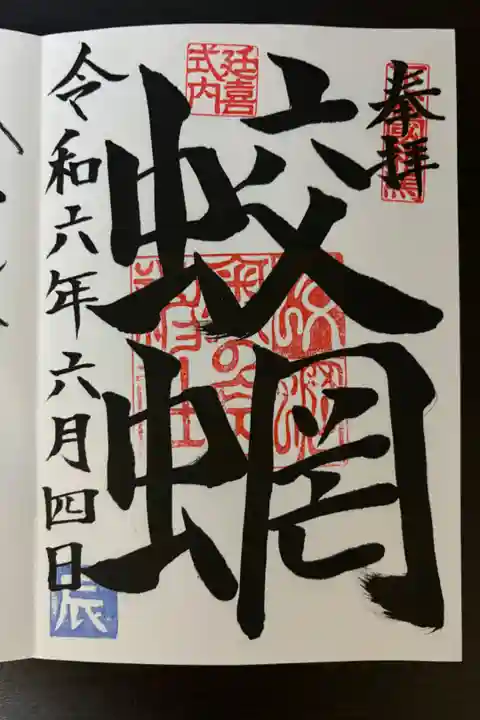 奉拝
延喜
式内
蛟蝄
令和六年六月四日
辰